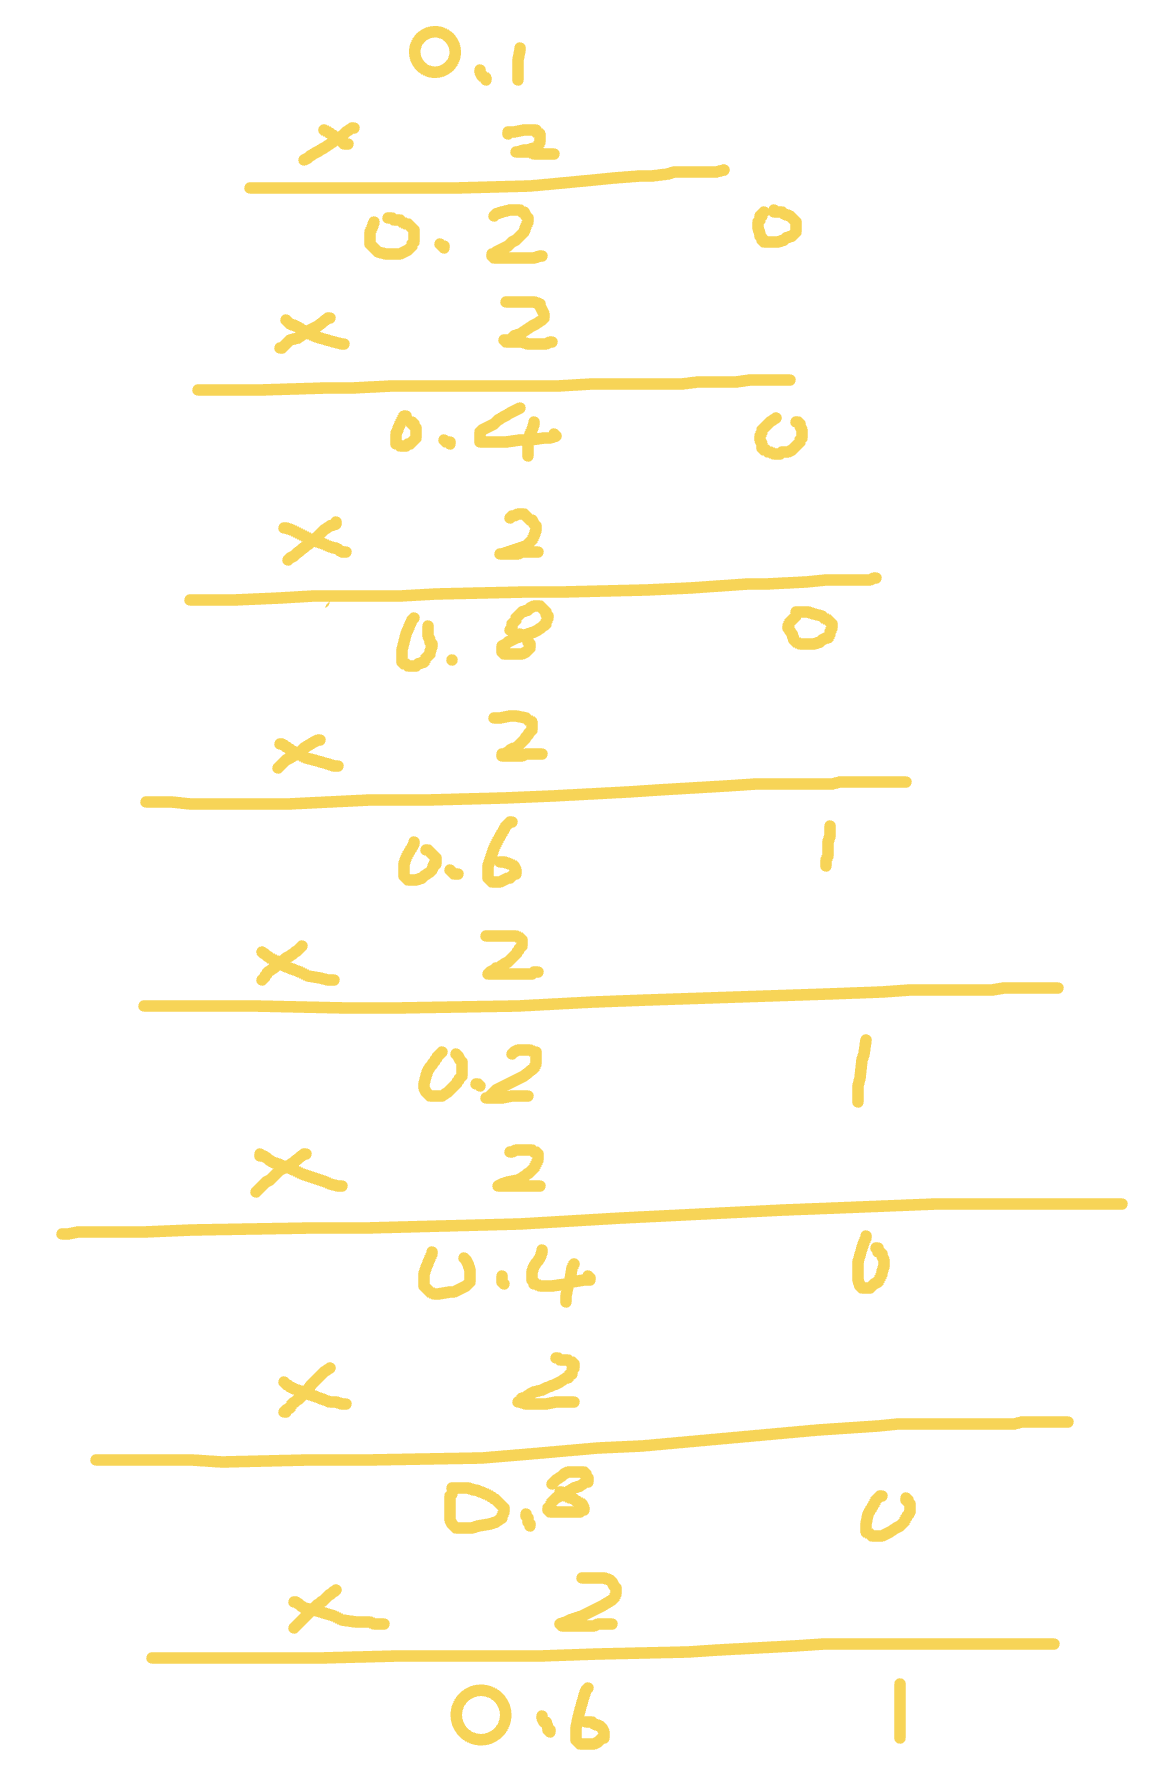 0.1
× 2
0.2 0
× 2
0.4 0
× 2
0.8 0
× 2
0.6 1
× 2
0.2 1
× 2
0.4 0
× 2
0.8 0
× 2
0.6 1